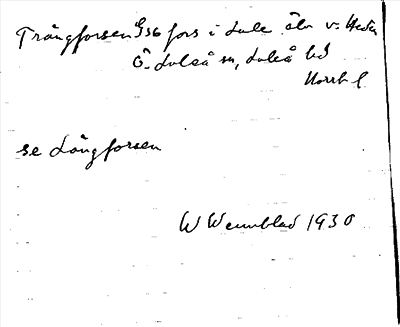 Trångforsen 956 fors i Lule älv v. Heden
Ö. Luleå sn, Luleå hd
Norrb l
se Långforsen
W Wennblad 1930